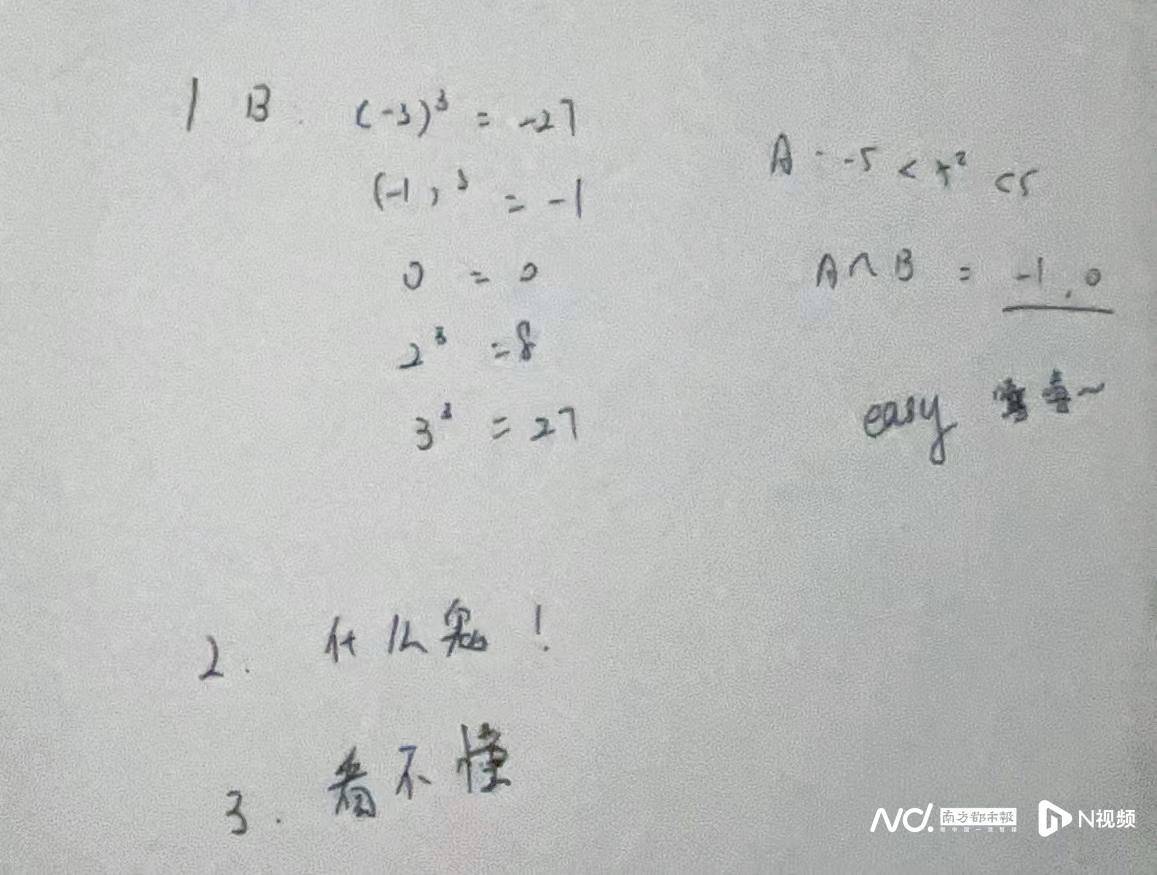 1 B. (-3)³ = -27
(-1)³ = -1
0 = 0
2³ = 8
3³ = 27
A -5 < x² < 5
A∩B = -1, 0
easy
2. 什么鬼！
3. 看不懂
南方都市报
N视频